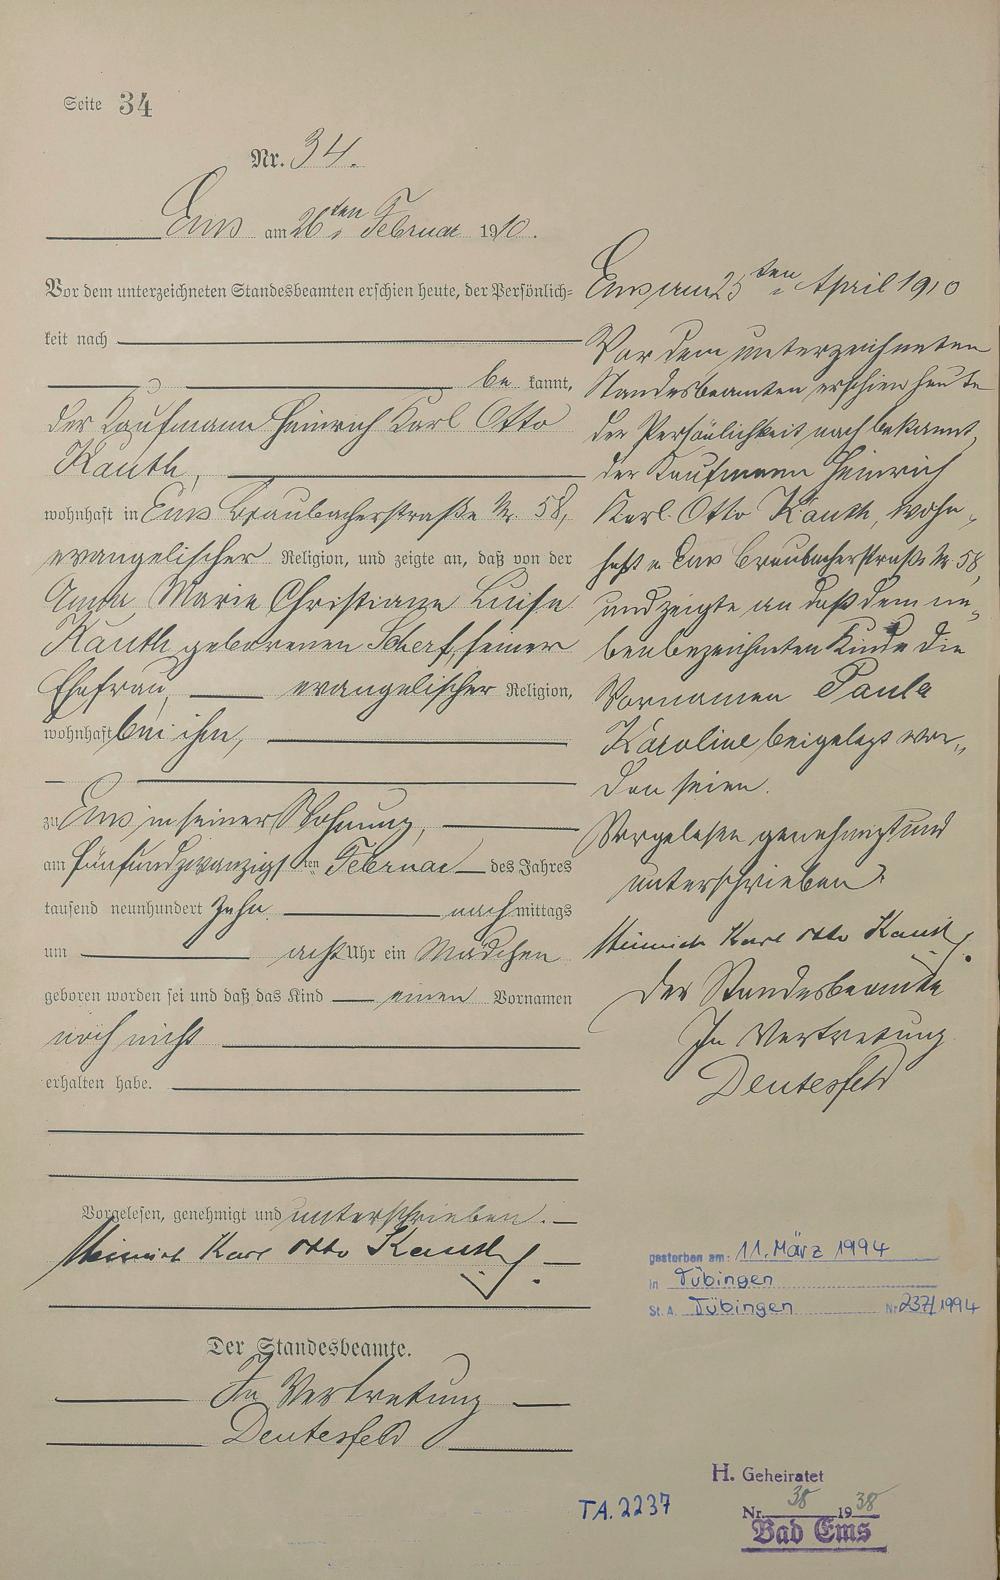 Seite 34
Nr. 34.
Ems am 26ten Februar 1910.
Vor dem unterzeichneten Standesbeamten erschien heute, der Persönlich=
keit nach
be kannt,
der Kaufmann Heinrich Karl Otto
Kauth,
wohnhaft in Ems Braubacherstraße Nr. 58,
evangelischer Religion, und zeigte an, daß von der
Anna Marie Christiane Luise
Kauth geborenen Scherf, seiner
Ehefrau, evangelischer Religion,
wohnhaft bei ihm,
zu Ems in seiner Wohnung,
am fünfundzwanzigsten Februar des Jahres
tausend neunhundert zehn nachmittags
um acht Uhr ein Mädchen
geboren worden sei und daß das Kind einen Vornamen
noch nicht
erhalten habe.
Vorgelesen, genehmigt und unterschrieben.
Heinrich Karl Otto Kauth
Der Standesbeamte.
In Vertretung
Deutesfeld
Ems am 25ten April 1910
Vor dem unterzeichneten
Standesbeamten erschien heute
der Persönlichkeit nach bekannt,
der Kaufmann Heinrich
Karl Otto Kauth, wohn=
haft in Ems Braubacherstraße Nr. 58,
und zeigte an daß dem ne=
benbezeichneten Kinde die
Vornamen Paula
Karoline beigelegt wor=
den seien.
Vorgelesen genehmigt und
unterschrieben.
Heinrich Karl Otto Kauth
Der Standesbeamte
In Vertretung
Deutesfeld
gestorben am: 11. März 1994
in Tübingen
St. A. Tübingen Nr 237/1994
H. Geheiratet
TA. 2237
Nr. 38 1938
Bad Ems